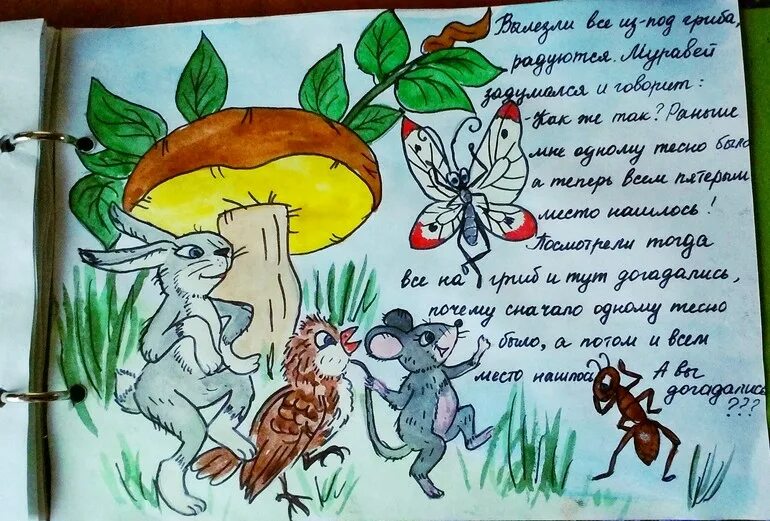 Вылезли все из-под гриба,
радуются. Муравей
задумался и говорит:
-Как же так? Раньше
мне одному тесно было
а теперь всем пятерым
место нашлось!
Посмотрели тогда
все на гриб и тут догадались,
почему сначало одному тесно
было, а потом и всем
место нашлось
А вы
догадались
???